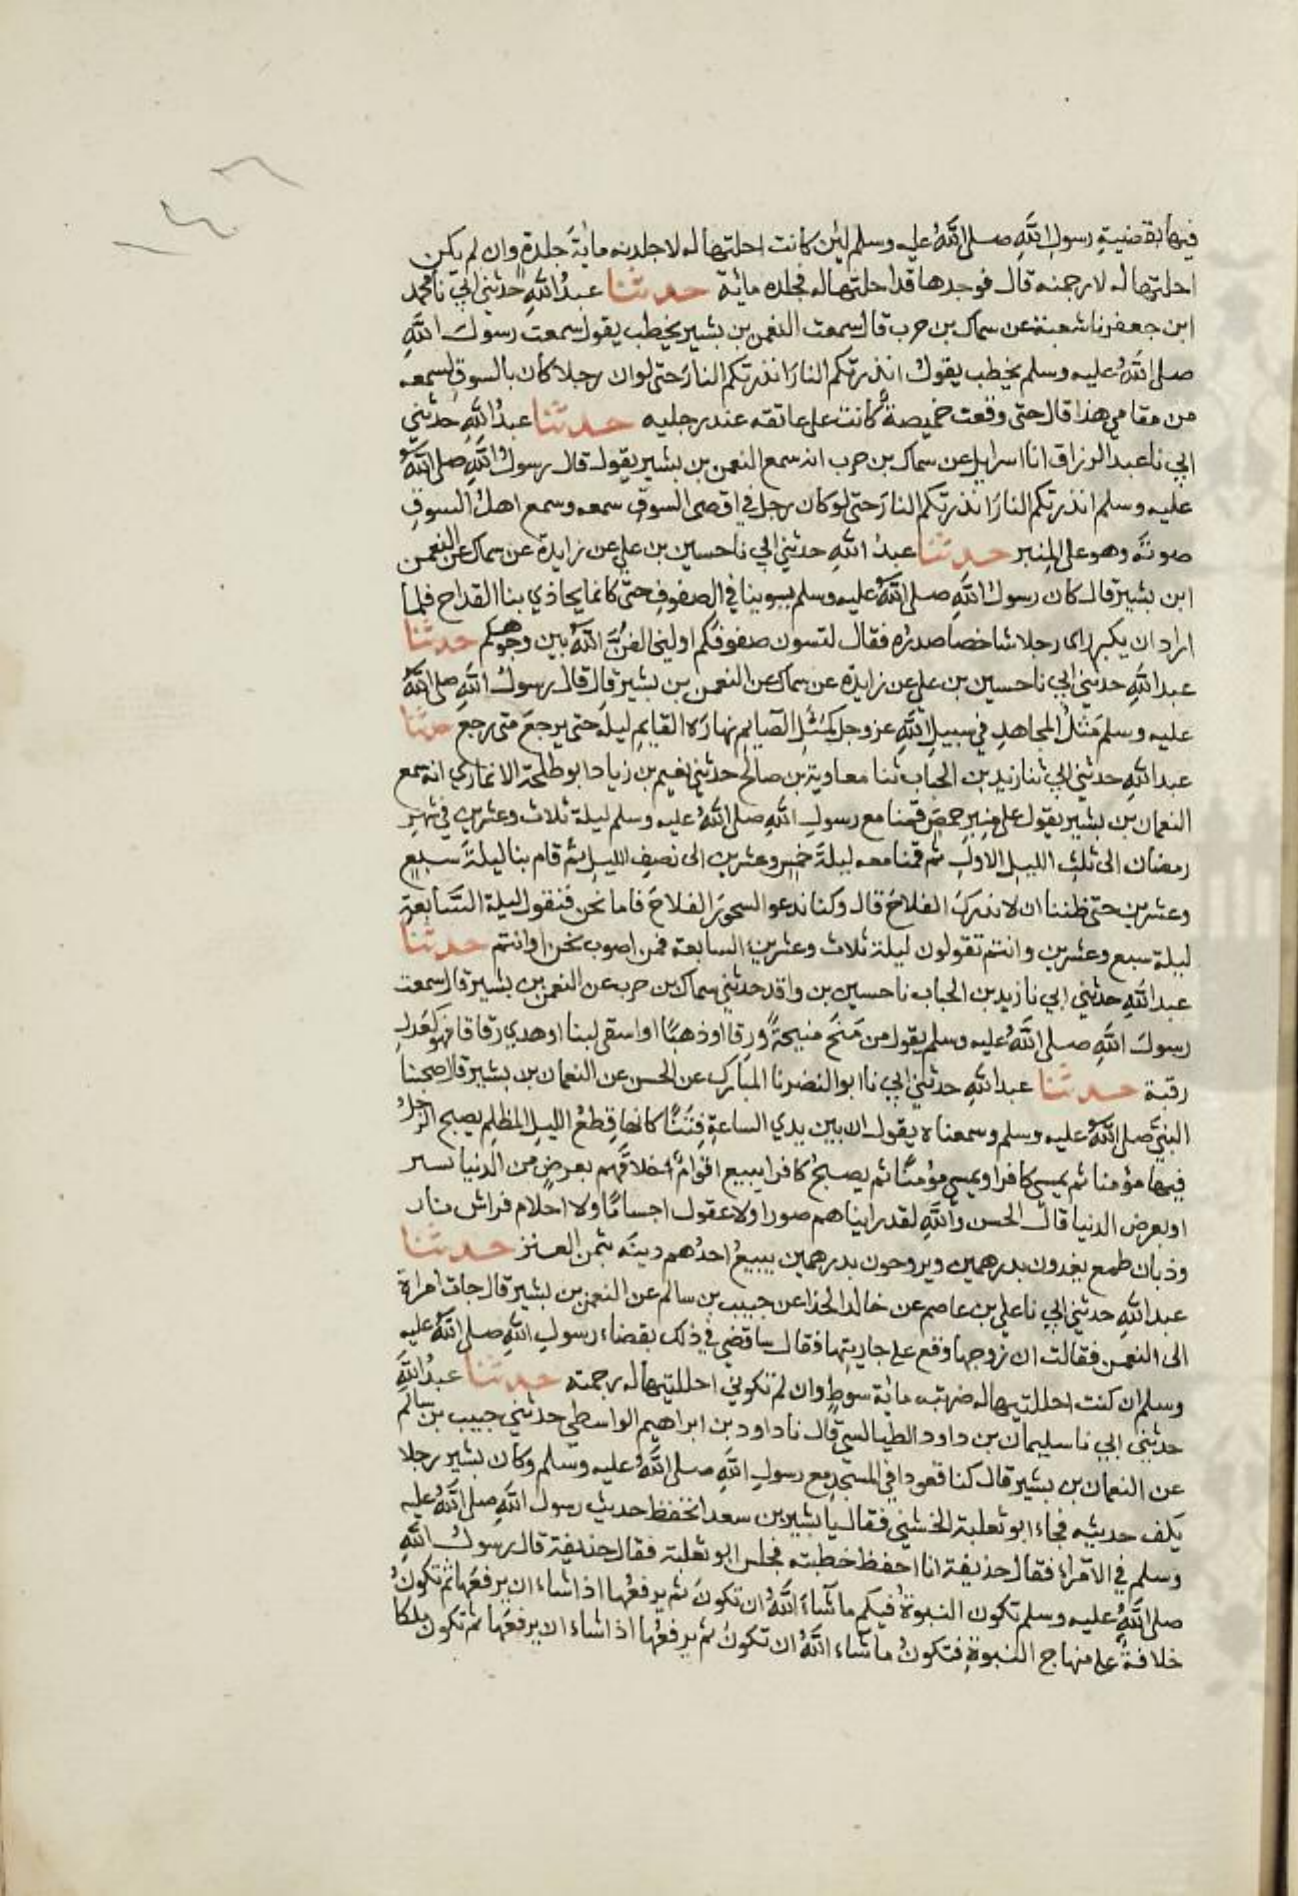 فيها بقضية رسول الله صلى الله عليه وسلم لئن كانت احلتها له لاجلدنه مائة جلدة وان لم يكن
احلتها له لارجمنه قال فوجدها قد احلتها له فجلده مائة حدثنا عبد الله حدثني ابي نا محمد
ابن جعفر نا شعبة عن سماك بن حرب قال سمعت النعمن بن بشير يخطب يقول سمعت رسول الله
صلى الله عليه وسلم يخطب يقول انذرتكم النار انذرتكم النار حتى لو ان رجلا كان بالسوق لسمعه
من مقامي هذا قال حتى وقعت خميصة كانت على عاتقه عند رجليه حدثنا عبد الله حدثني
ابي نا عبد الرزاق انا اسرايل عن سماك بن حرب انه سمع النعمن بن بشير يقول قال رسول الله صلى الله
عليه وسلم انذرتكم النار انذرتكم النار حتى لو كان رجل في اقصى السوق سمعه وسمع اهل السوق
صوته وهو على المنبر حدثنا عبد الله حدثني ابي نا حسين بن علي عن زايدة عن سماك عن النعمن
ابن بشير قال كان رسول الله صلى الله عليه وسلم يسوينا في الصفوف حتى كانما يحاذي بنا القداح فلما
اراد ان يكبر راى رجلا شاخصا صدره فقال لتسون صفوفكم او ليخالفن الله بين وجوهكم حدثنا
عبد الله حدثني ابي نا حسين بن علي عن زايدة عن سماك عن النعمن بن بشير قال قال رسول الله صلى الله
عليه وسلم مثل المجاهد في سبيل الله عز وجل كمثل الصايم نهاره القايم ليله حتى يرجع متى رجع حدثنا
عبد الله حدثني ابي ثنا زيد بن الحباب ثنا معاوية بن صالح حدثني نعيم بن زياد ابو طلحة الانماري انه سمع
النعمان بن بشير يقول على منبر حمص قمنا مع رسول الله صلى الله عليه وسلم ليلة ثلاث وعشرين في شهر
رمضان الى ثلث الليل الاول ثم قمنا معه ليلة خمس وعشرين الى نصف الليل ثم قام بنا ليلة سبع
وعشرين حتى ظننا ان لا ندرك الفلاح قال وكنا ندعو السحور الفلاح فاما نحن فنقول ليلة السابعة
ليلة سبع وعشرين وانتم تقولون ليلة ثلاث وعشرين السابعة فمن اصوب نحن او انتم حدثنا
عبد الله حدثني ابي نا زيد بن الحباب نا حسين بن واقد حدثني سماك بن حرب عن النعمن بن بشير قال سمعت
رسول الله صلى الله عليه وسلم يقول من منح منيحة ورقا او ذهبا او اسقى لبنا او هدي زقاقا فهو كعدل
رقبة حدثنا عبد الله حدثني ابي نا ابو النضر نا المبارك عن الحسن عن النعمان بن بشير قال صحبنا
النبي صلى الله عليه وسلم وسمعناه يقول ان بين يدي الساعة فتنا كانها قطع الليل المظلم يصبح الرجل
فيها مؤمنا ثم يمسي كافرا ويمسي مؤمنا ثم يصبح كافرا يبيع اقوام اخلاقهم بعرض من الدنيا يسير
او بعرض الدنيا قال الحسن والله لقد رايناهم صورا ولا عقول اجساما ولا احلام فراش نار
وذبان طمع يغدون بدرهمين ويروحون بدرهمين يبيع احدهم دينه بثمن العنز حدثنا
عبد الله حدثني ابي نا علي بن عاصم عن خالد الحذا عن حبيب بن سالم عن النعمن بن بشير قال جات امراة
الى النعمن فقالت ان زوجها وقع على جاريتها فقال ساقضي في ذلك بقضاء رسول الله صلى الله عليه
وسلم ان كنت احللتيها له ضربته مائة سوط وان لم تكوني احللتيها له رجمته حدثنا عبد الله
حدثني ابي نا سليمان بن داود الطيالسي قال نا داود بن ابراهيم الواسطي حدثني حبيب بن سالم
عن النعمان بن بشير قال كنا قعودا في المسجد مع رسول الله صلى الله عليه وسلم وكان بشير رجلا
يكف حديثه فجاء ابو ثعلبة الخشني فقال يا بشير بن سعد اتحفظ حديث رسول الله صلى الله عليه
وسلم في الامراء فقال حذيفة انا احفظ خطبته فجلس ابو ثعلبة فقال حذيفة قال رسول الله
صلى الله عليه وسلم تكون النبوة فيكم ما شاء الله ان تكون ثم يرفعها اذا شاء ان يرفعها ثم تكون
خلافة على منهاج النبوة فتكون ما شاء الله ان تكون ثم يرفعها اذا شاء ان يرفعها ثم تكون ملكا